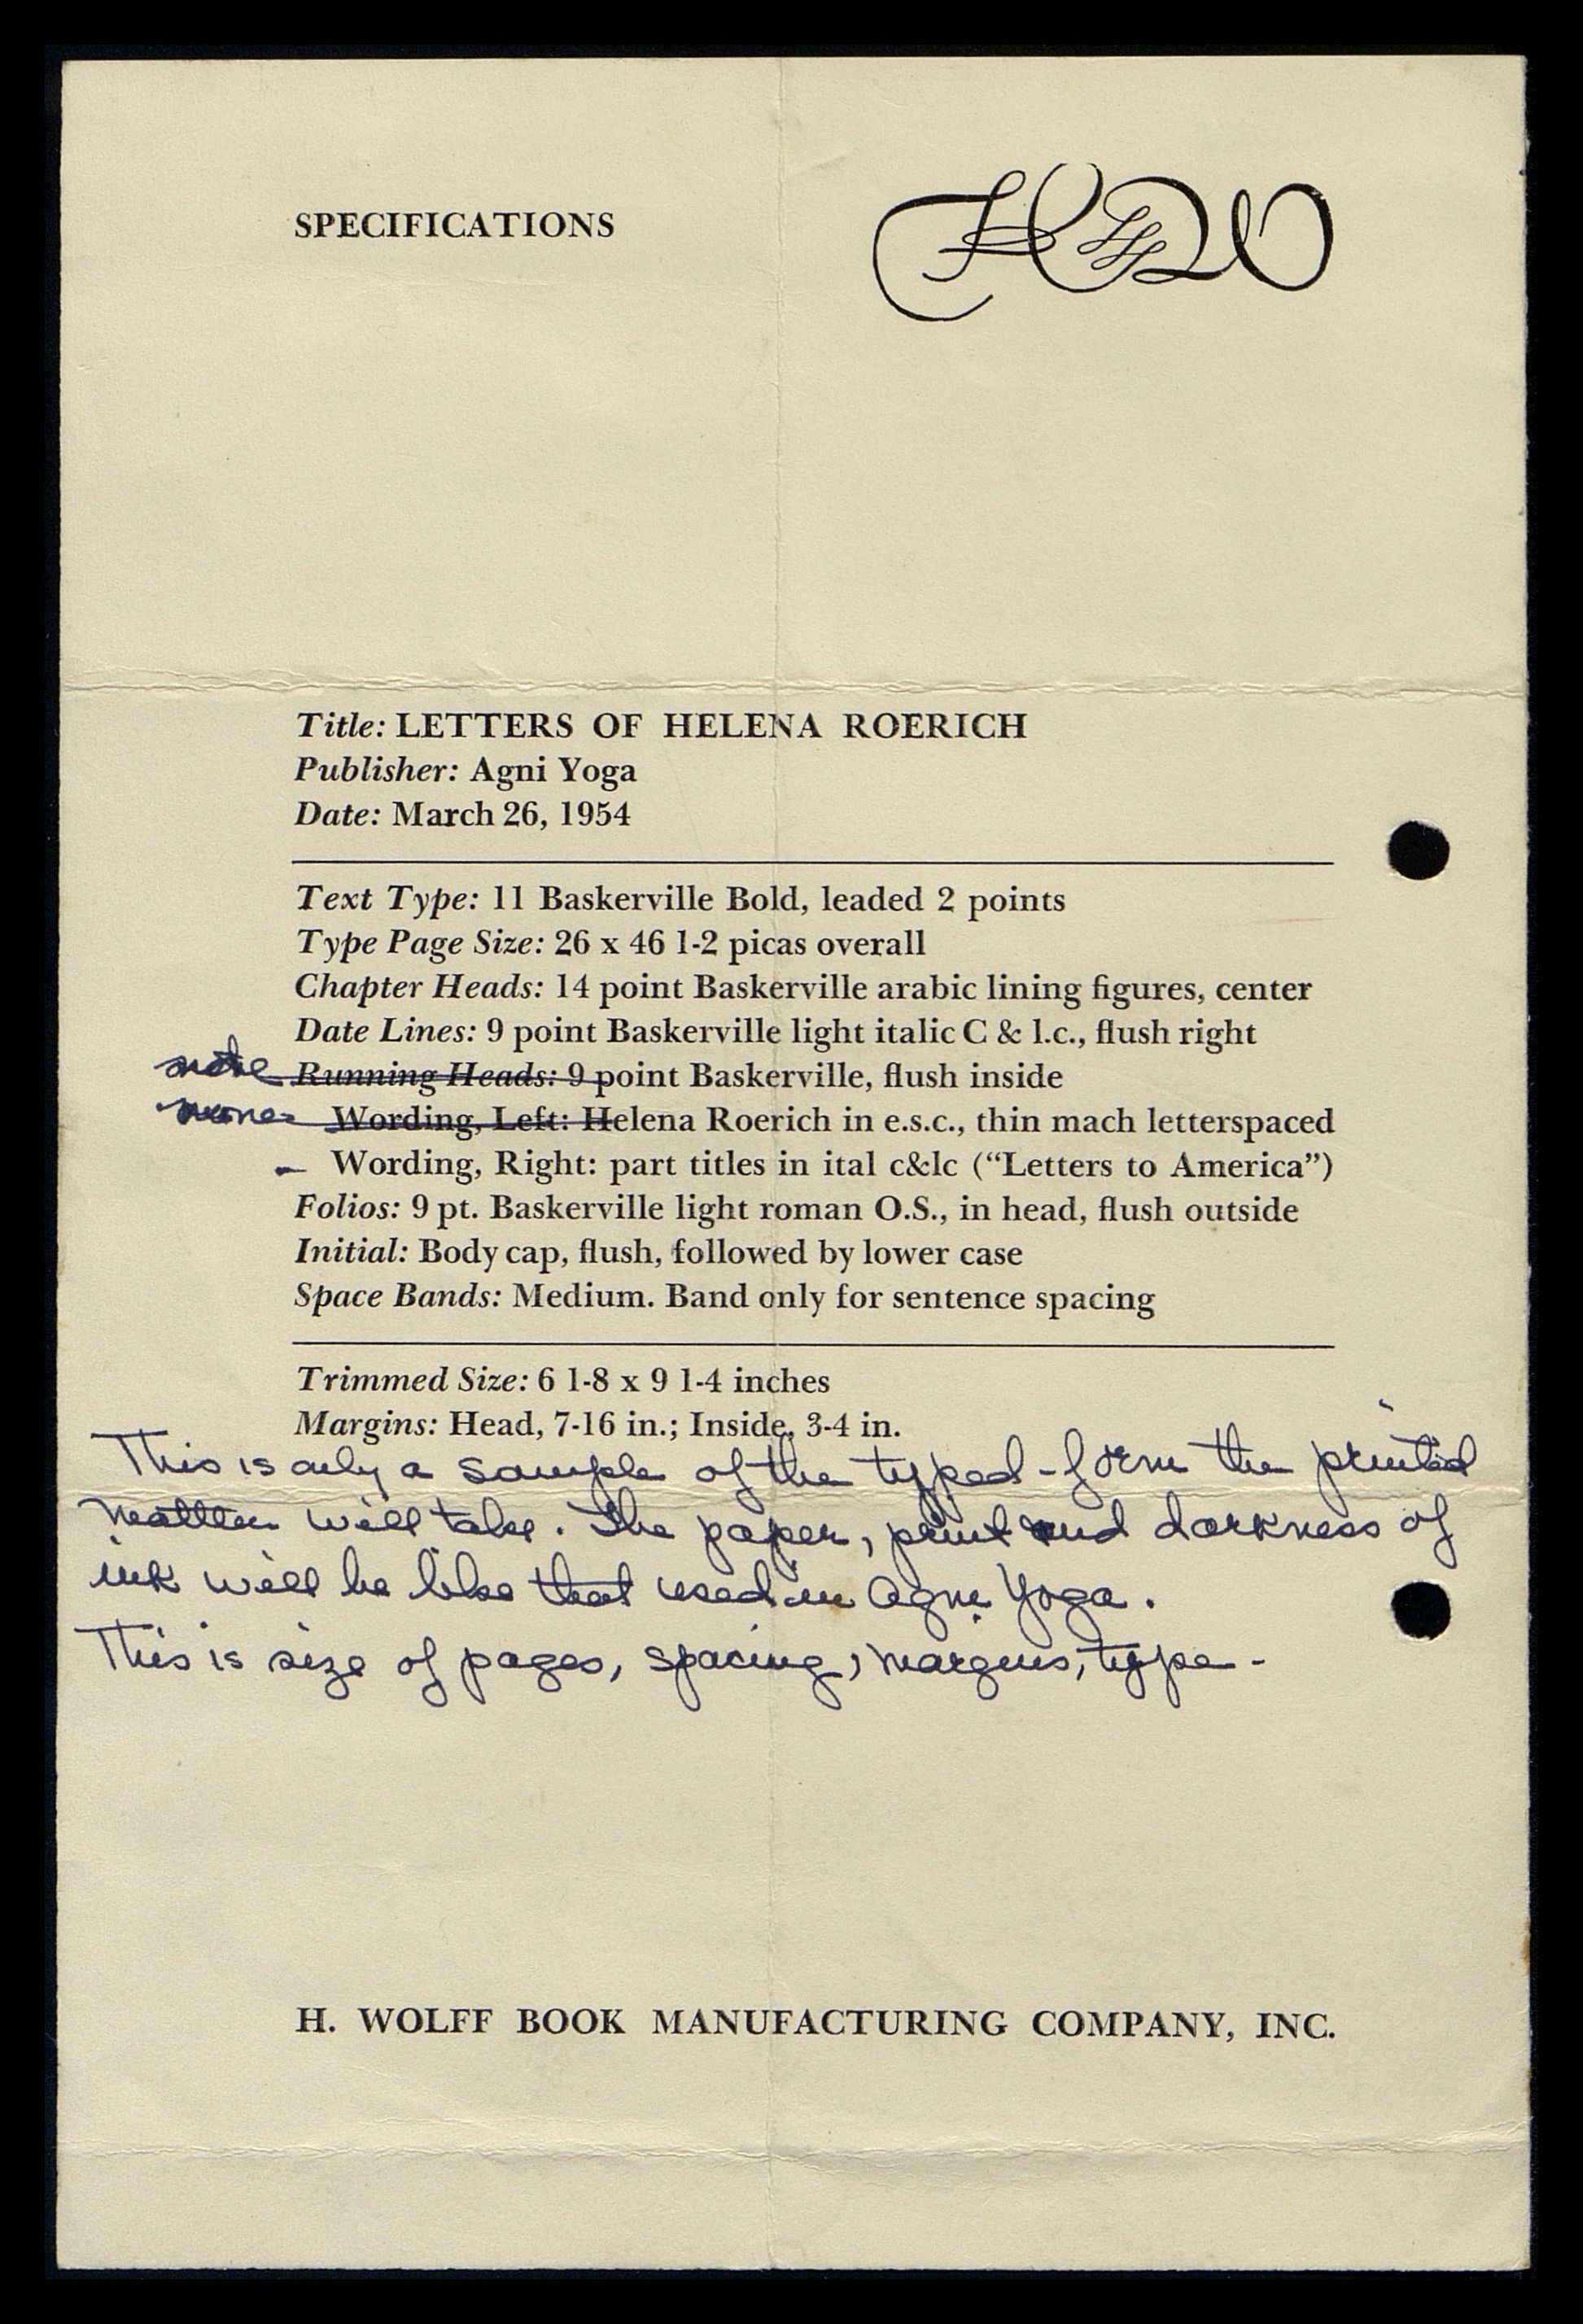 SPECIFICATIONS
Title: LETTERS OF HELENA ROERICH
Publisher: Agni Yoga
Date: March 26, 1954
Text Type: 11 Baskerville Bold, leaded 2 points
Type Page Size: 26 x 46 1-2 picas overall
Chapter Heads: 14 point Baskerville arabic lining figures, center
Date Lines: 9 point Baskerville light italic C & l.c., flush right
note Running Heads: 9 point Baskerville, flush inside
none Wording, Left: Helena Roerich in e.s.c., thin mach letterspaced
– Wording, Right: part titles in ital c&lc (“Letters to America”)
Folios: 9 pt. Baskerville light roman O.S., in head, flush outside
Initial: Body cap, flush, followed by lower case
Space Bands: Medium. Band only for sentence spacing
Trimmed Size: 6 1-8 x 9 1-4 inches
Margins: Head, 7-16 in.; Inside, 3-4 in.
This is only a sample of the typed-form the printed
matter will take. The paper, print and darkness of
ink will be like that used in Agni Yoga.
This is size of pages, spacing, margins, type-
H. WOLFF BOOK MANUFACTURING COMPANY, INC.